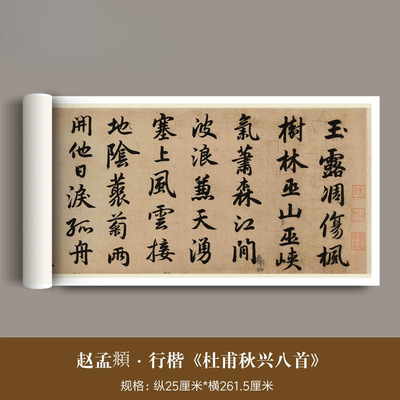 玉露凋傷楓
樹林巫山巫峽
氣蕭森江間
波浪蒹天湧
塞上風雲接
地陰藂菊兩
開他日淚孤舟
赵孟頫·行楷《杜甫秋兴八首》
规格：纵25厘米*横261.5厘米